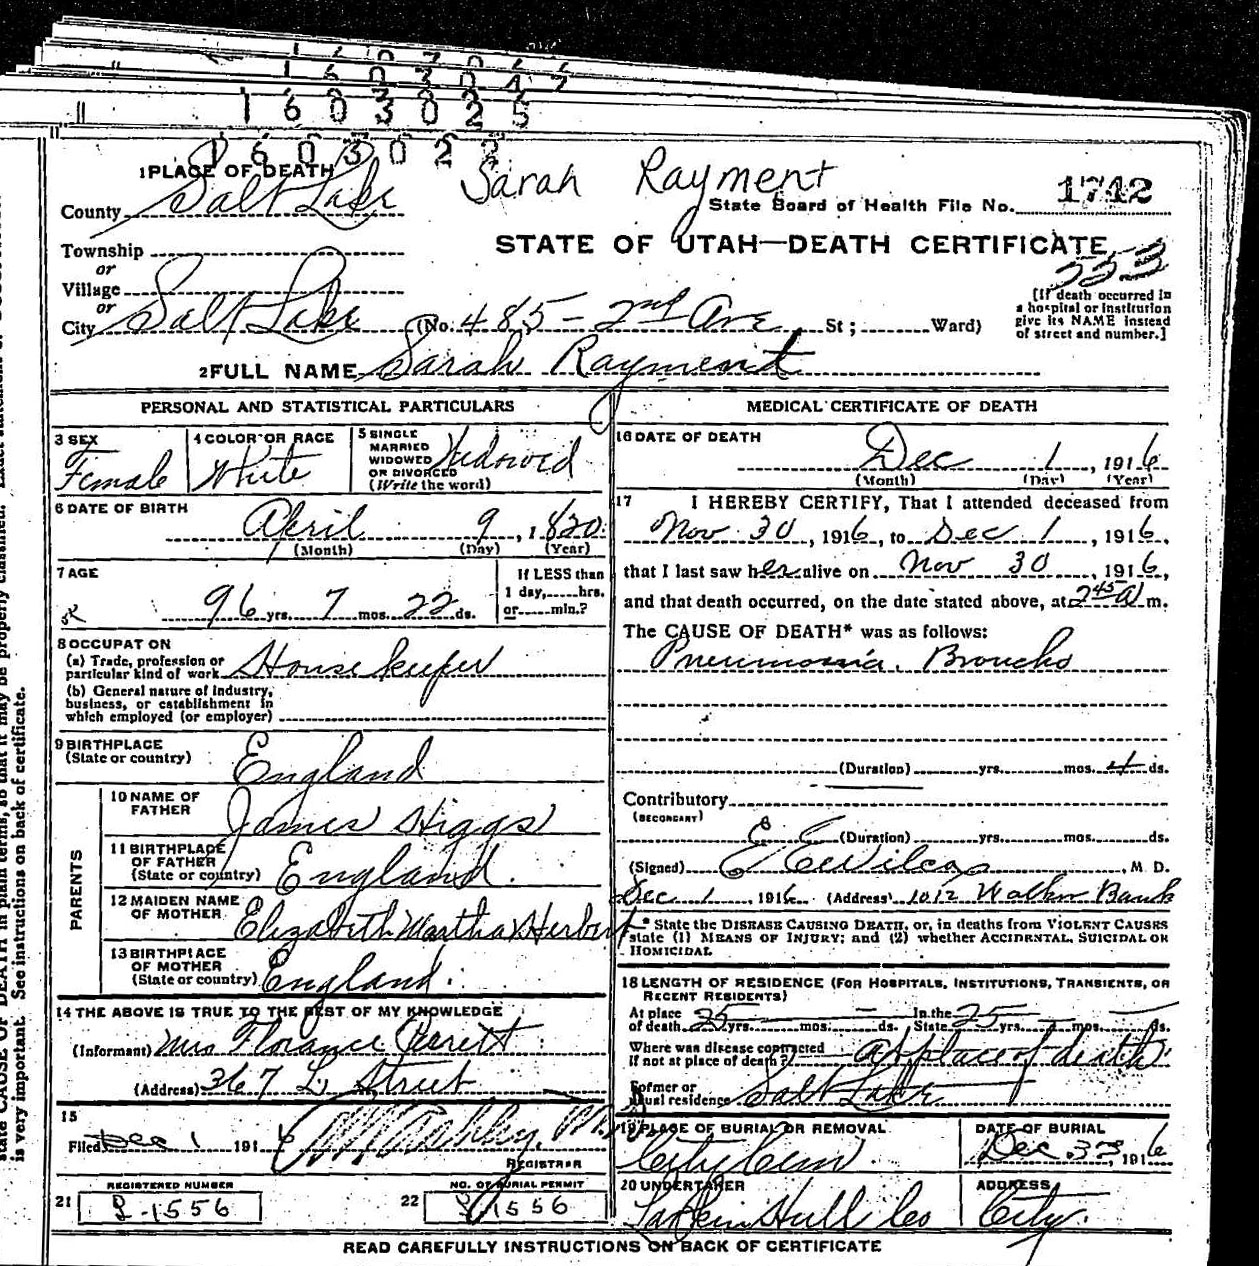 1 6 0 3 0 4 7
1 6 0 3 0 2 5
1 6 0 3 0 2 2
1 PLACE OF DEATH
Sarah Rayment
County Salt Lake
State Board of Health File No. 1742
Township
or
STATE OF UTAH—DEATH CERTIFICATE
Village
or
City Salt Lake (No. 485 - 2nd Ave St; Ward)
[If death occurred in
a hospital or institution
give its NAME instead
of street and number.]
2 FULL NAME Sarah Rayment
PERSONAL AND STATISTICAL PARTICULARS
3 SEX
Female
4 COLOR OR RACE
White
5 SINGLE
MARRIED
WIDOWED
OR DIVORCED
(Write the word)
Widowed
6 DATE OF BIRTH
April 9, 1820
(Month) (Day) (Year)
7 AGE
96 yrs. 7 mos. 22 ds.
If LESS than
1 day, hrs.
or min.?
8 OCCUPATION
(a) Trade, profession or
particular kind of work House keeper
(b) General nature of industry,
business, or establishment in
which employed (or employer)
9 BIRTHPLACE
(State or country) England
PARENTS
10 NAME OF
FATHER James Higgs
11 BIRTHPLACE
OF FATHER
(State or country) England.
12 MAIDEN NAME
OF MOTHER Elizabeth Martha Herbert
13 BIRTHPLACE
OF MOTHER
(State or country) England.
14 THE ABOVE IS TRUE TO THE BEST OF MY KNOWLEDGE
(Informant) Mrs Florance Perrett
(Address) 367 L Street
15
Filed Dec 1 1916
REGISTRAR
21 REGISTERED NUMBER
1556
22 NO. OF BURIAL PERMIT
1556
MEDICAL CERTIFICATE OF DEATH
16 DATE OF DEATH
Dec 1, 1916
(Month) (Day) (Year)
17 I HEREBY CERTIFY, That I attended deceased from
Nov 30, 1916, to Dec 1, 1916,
that I last saw her alive on Nov 30, 1916,
and that death occurred, on the date stated above, at 2 45 A m.
The CAUSE OF DEATH* was as follows:
Pneumonia. Broncho
(Duration) yrs. mos. 4 ds.
Contributory
(SECONDARY)
(Duration) yrs. mos. ds.
(Signed) E E Wilcox, M D.
Dec 1 1916 (Address) 1012 Walker Bank
* State the DISEASE CAUSING DEATH, or, in deaths from VIOLENT CAUSES
state (1) MEANS OF INJURY; and (2) whether ACCIDENTAL, SUICIDAL OR
HOMICIDAL
18 LENGTH OF RESIDENCE (FOR HOSPITALS, INSTITUTIONS, TRANSIENTS, OR
RECENT RESIDENTS)
At place of death 25 yrs. mos. ds. In the State 25 yrs. mos. ds.
Where was disease contracted
if not at place of death? At place of death
Former or
usual residence Salt Lake
19 PLACE OF BURIAL OR REMOVAL
City Cem
DATE OF BURIAL
Dec 3rd, 1916
20 UNDERTAKER
Larkin Hull Co
ADDRESS
City.
READ CAREFULLY INSTRUCTIONS ON BACK OF CERTIFICATE
state CAUSE OF DEATH in plain terms, so that it may be properly classified. Exact
is very important. See instructions on back of certificate.